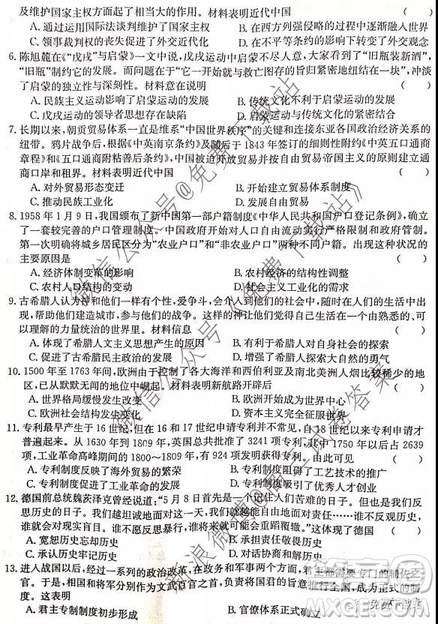 及维护国家主权方面起了相当大的作用。材料表明近代中国
A. 通过运用国际法谈判维护了国家主权 B. 在西方列强侵略的过程中逐渐融入世界
C. 领事裁判权的丧失促进了外交近代化 D. 外交
6. 陈旭麓在《〈戊戌〉与启蒙》一文中说,戊戌运动启蒙不尽人意,大家看到了“旧瓶装新酒”,
“旧瓶”制约了它的发展。而问题在于“它一开始就与救亡图存的旨归紧密地纽结在一块”,冲淡
了启蒙的独立性与深刻性。材料意在说明
A. 民族主义运动影响了启蒙运动 B. 传统文化不利于启蒙运动的发展
C. 戊戌运动的领导者思想存在缺陷 D. 启蒙运动与传统文化的紧密结合
7. 长期以来,朝贡贸易体系一直是维系“中国世界秩序”的关键和连接东亚各国政治经济关系的
纽带。鸦片战争后,根据《中英南京条约》及随后于 1843 年签订的细则性条约《中英五口通商
章程》和《五口通商附粘善后条约》,中国被迫开放贸易并按自由贸易帝国主义的原则建立通
商口岸和租界。材料表明近代中国
A. 对外贸易形态变迁 B. 开始建立贸易体系制度
C. 推动民族工业化 D. 自由贸易
8. 1958 年 1 月 9 日,我国颁布了新中国第一部户籍制度《中华人民共和国户口登记条例》,确立
了一套较完善的户口管理制度。它以法律形式对人口自由流动实行严格限制和政府管制。
第一次明确将城乡居民区分为“农业户口”和“非农业户口”两种不同户籍。出现这一状况的
主要原因是
A. 经济体制变革的影响 B. 农村经济的结构性调整
C. 农村人口结构的变化 D. 社会主义工业化的需求
9. 古希腊人认为神和他们一样有个性,爱争斗,会介入到他们的社会中,随时在人们的生活中出
现,帮助他们建造城市,参与他们的战争。这样的神让他们觉得自己生活在一个由自己熟悉的
力量统治的世界里。材料信息
A. 体现了古希腊人文主义思想产生的根源 B. 有利于古希腊人对自身社会的探索
C. 促进了古希腊民主政治的发展 D. 增强了古希腊人探索大自然的勇气
10. 1500 年至 1763 年间,欧洲由于控制了各大海洋和西伯利亚及南北美洲人烟比较稀少的地
区,已从默默无闻的地位中崛起。材料表明新航路开辟后
A. 世界格局缓慢发生改变 B. 欧洲开始成为世界中心
C. 欧洲社会结构发生变化 D. 资本主义完全征服世界
11. 专利最早产生于 16 世纪,但在 16 和 17 世纪申请专利并不常见,自从 18 世纪以来专利申请才
普遍起来。从 1630 年到 1809 年,英国总共批准了 3241 项专利,其中 1750 年以后占 2639
项,工业革命高峰期间的 1800~1809 年批准了 924 项专利。由此可见
A. 专利制度反映了海外贸易的繁荣 B. 专利制度阻碍了工艺技术的推广
C. 专利制度促进了工业革命的发展 D. 专利制度
12. 德国前总统魏茨泽克曾经说道,“5 月 8 日首先是一个记住人们苦难的日子。但也是我们反
思历史的日子。我们越坦诚地面对这一天,我们也就越自由地承担责任。谁不反思历史,谁
就会对现实盲目。谁不愿反思暴行,谁将来就可能会重蹈覆辙。”这体现了德国
A. 宽恕历史忘却历史 B. 忘却历史宽恕历史
C. 承认历史牢记历史 D. 牢记历史
13. 进入战国以后,经过一系列的政治改革,在政务和军事两个方面,
官。于是,相国和将军分别作为文武百官之首,负责处理国家日常事务并承担相应责任。
这表明
A. 君主专制制度初步形成 B. 官僚体系正式确立